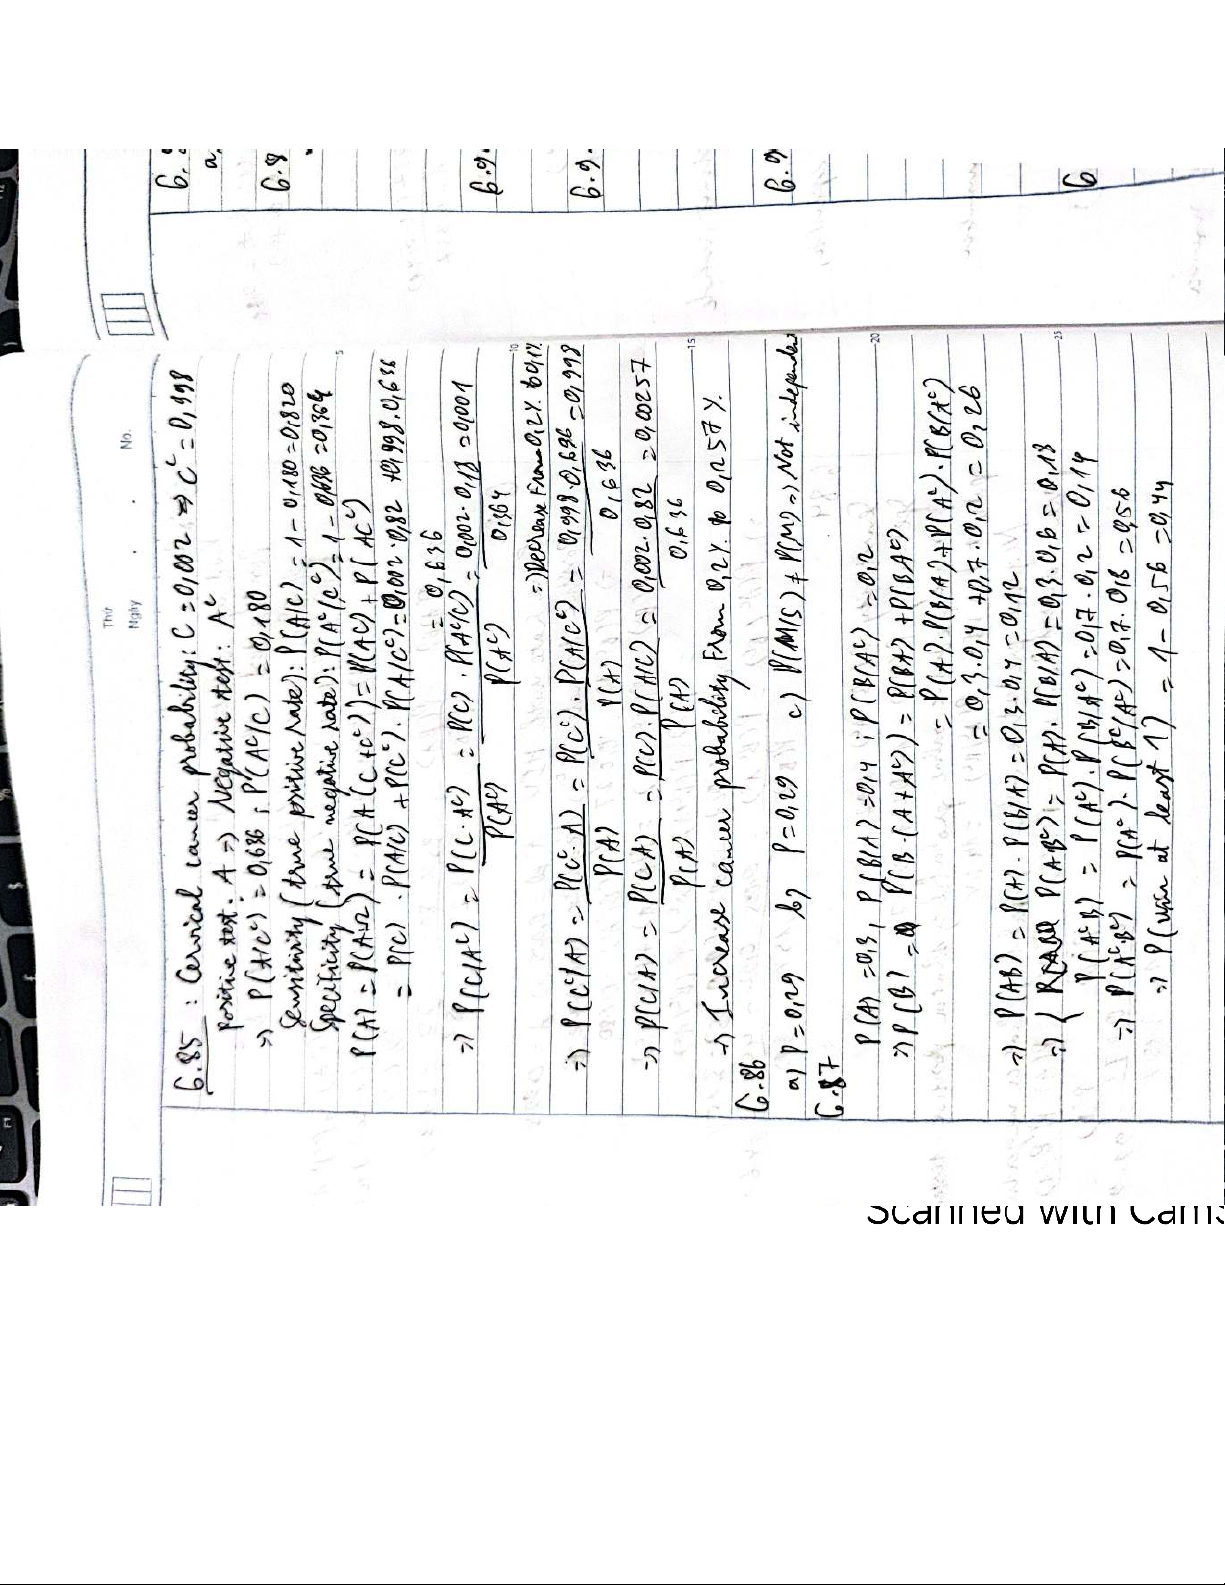 Thứ
Ngày . . No.
6.85 : Cervical cancer probability: C = 0,002 => C^c = 0,998
Positive test: A => Negative test: A^c
=> P(A/C^c) = 0,636 ; P(A^c/C) = 0,180
Sensitivity (true positive rate): P(A/C) = 1 - 0,180 = 0,820
Specificity (true negative rate): P(A^c/C^c) = 1 - 0,636 = 0,364
P(A) = P(AΩ) = P(A(C+C^c)) = P(AC) + P(AC^c)
= P(C) . P(A/C) + P(C^c) . P(A/C^c) = 0,002 . 0,82 + 0,998 . 0,636
= 0,636
=> P(C/A^c) = P(C.A^c)/P(A^c) = P(C) . P(A^c/C)/P(A^c) = 0,002 . 0,18/0,364 = 0,001
=> Decrease From 0,2% to 0,1%
=> P(C^c/A) = P(C^c.A)/P(A) = P(C^c) . P(A/C^c)/P(A) = 0,998 . 0,636/0,636 = 0,998
=> P(C/A) = P(CA)/P(A) = P(C) . P(A/C)/P(A) = 0,002 . 0,82/0,636 = 0,00257
-> Increase cancer probability From 0,2% to 0,257%
6.86
a) P = 0,29 b) P = 0,29 c) P(M/S) ≠ P(M) => Not independent
6.87
P(A) = 0,3, P(B/A) = 0,4 ; P(B/A^c) = 0,2
=> P(B) = P(B.(A+A^c)) = P(BA) + P(BA^c)
= P(A).P(B/A) + P(A^c).P(B/A^c)
= 0,3 . 0,4 + 0,7 . 0,2 = 0,26
=> P(AB) = P(A) . P(B/A) = 0,3 . 0,4 = 0,12
=> { P(AB^c) = P(A) . P(B/A) = 0,3 . 0,6 = 0,18
P(A^cB) = P(A^c) . P(B/A^c) = 0,7 . 0,2 = 0,14
=> P(A^c.B^c) = P(A^c) . P(B^c/A^c) = 0,7 . 0,8 = 0,56
=> P(win at least 1) = 1 - 0,56 = 0,44
5
10
15
20
25
a,
6.8
6.9
6.9
6.9
6
Scanned with Cams